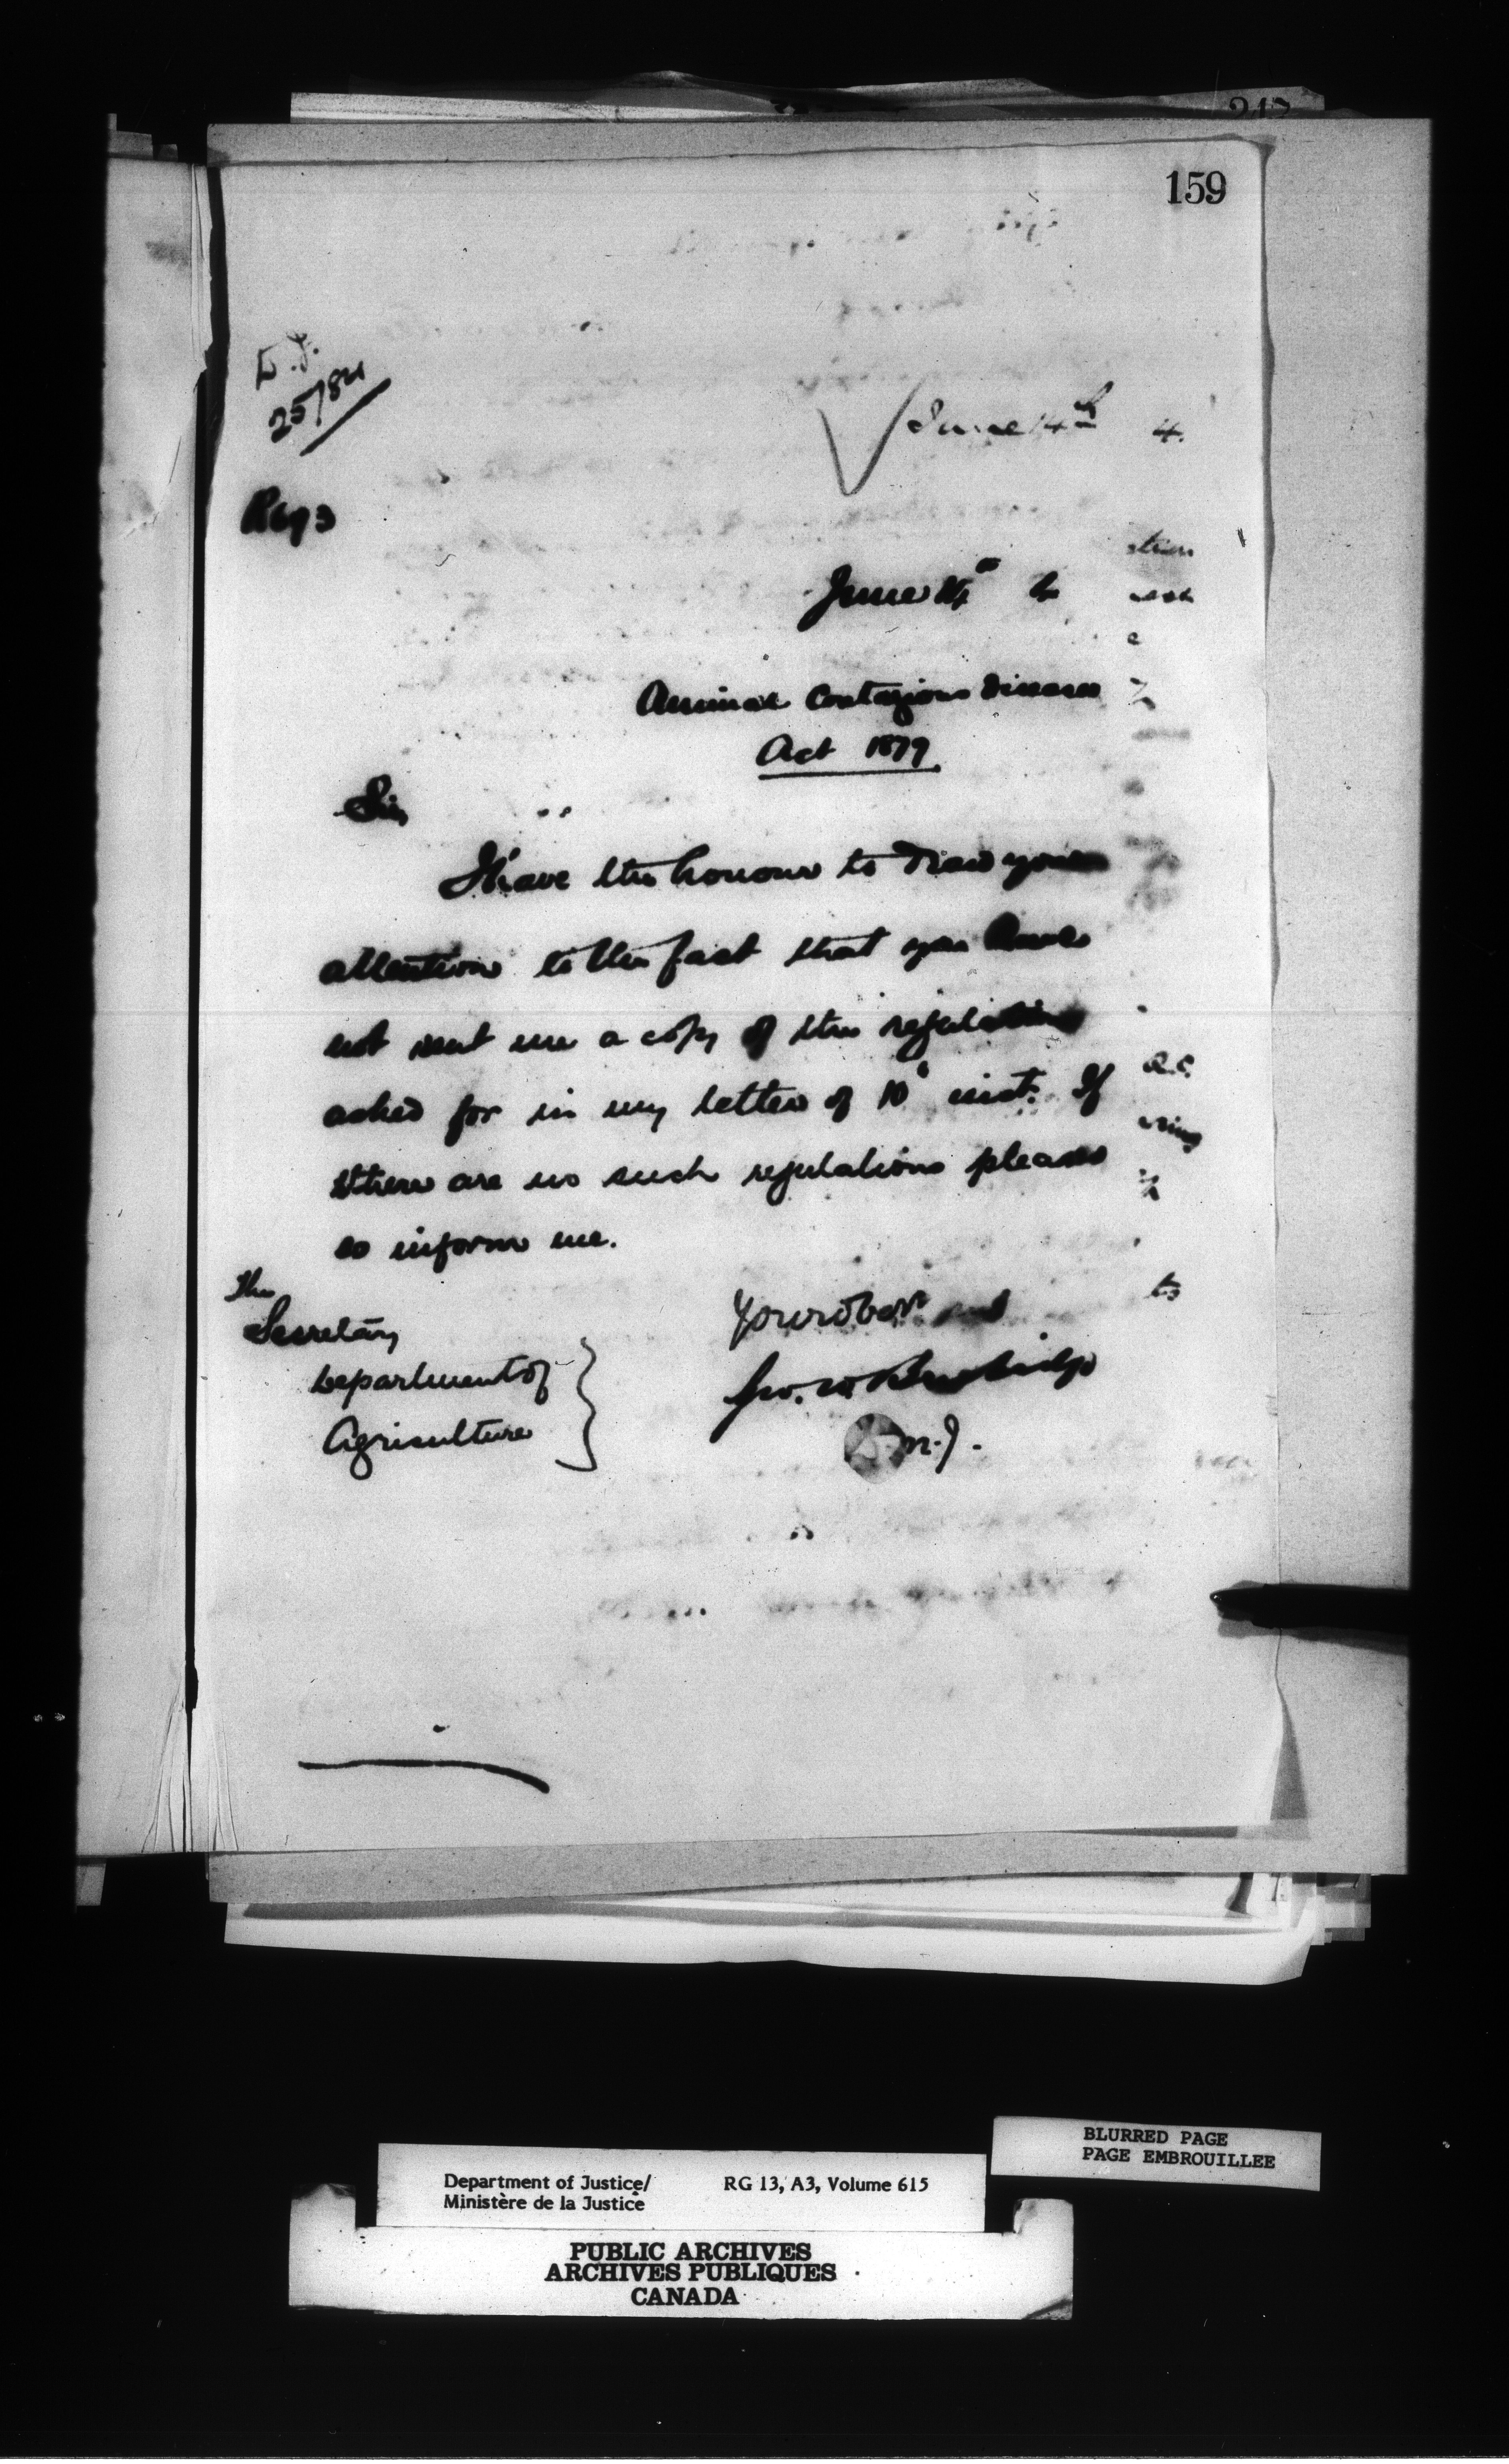 159
25/84
June 14th 4.
June 14th 4
Animal Contagious Diseases
Act 1879.
Sir,
I have the honour to draw your
attention to the fact that you have
not sent me a copy of the regulations
asked for in my letter of 10 inst. If
there are no such regulations please
so inform me.
Your obdt
Geo. W. Burbidge
D.M.J.
The
Secretary
Department of
Agriculture
BLURRED PAGE
PAGE EMBROUILLEE
Department of Justice/ RG 13, A3, Volume 615
Ministère de la Justice
PUBLIC ARCHIVES
ARCHIVES PUBLIQUES
CANADA